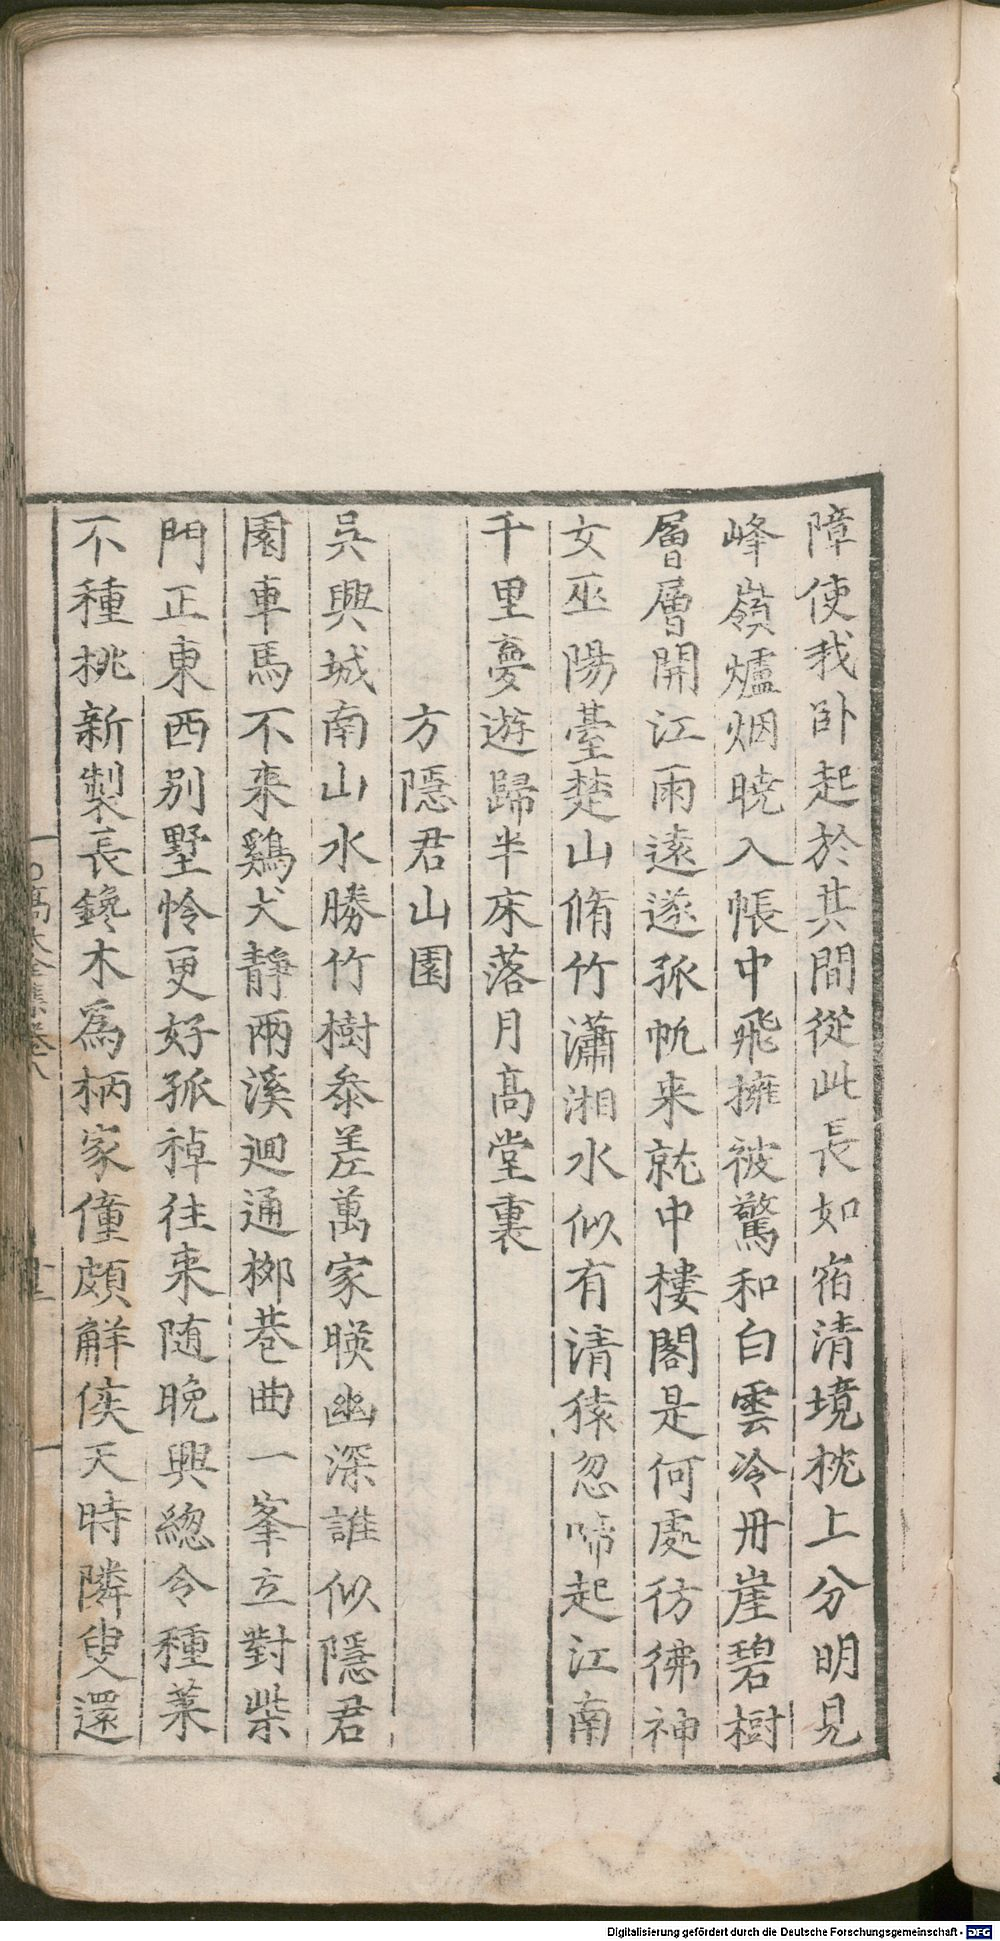 障使我卧起於其間從此長如宿清境枕上分明見
峰嶺爐烟曉入帳中飛擁被驚和白雲冷丹崖碧樹
層層開江雨遠遂孤帆来就中樓閣是何處彷彿神
女巫陽臺楚山脩竹瀟湘水似有清猿忽啼起江南
千里夢遊歸半床落月髙堂裏
方隱君山園
吳興城南山水勝竹樹叅差萬家暎幽深誰似隱君
園車馬不来鷄犬靜兩溪迴通栁巷曲一峯立對柴
門正東西别墅怜更好孤棹往来随晚興總令種菜
不種桃新製長鑱木為柄家僮頗觧俟天時隣叟還
髙大全集卷八
Digitalisierung gefördert durch die Deutsche Forschungsgemeinschaft - DFG